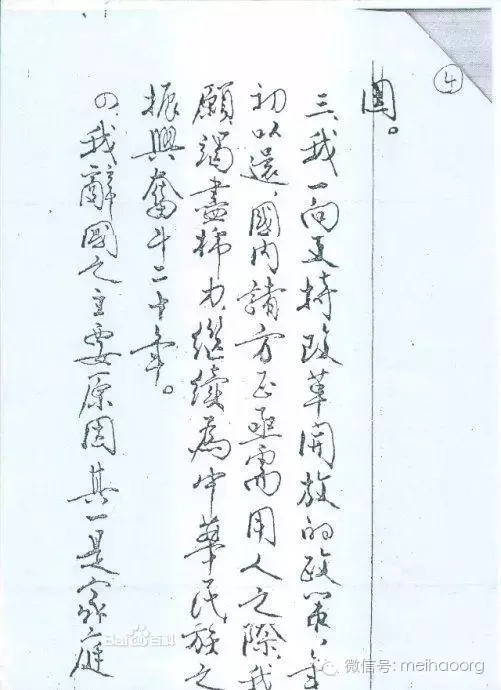 ④
國。
三、我一向支持改革開放的政策,年
初以還,國内諸方正亟需用人之際,我
願竭盡棉力,继續為中華民族之
振興奮斗二十年。
四、我辭國之主要原因其一是家庭
Baidu百科
微信号: meihaoorg